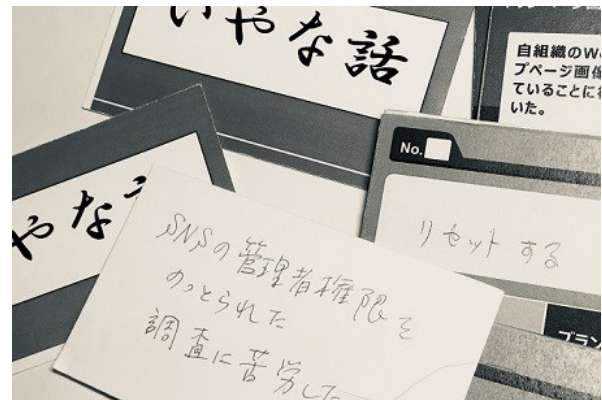 いやな話
自組織のWe
プページ画像
ていることに
いた。
No.
リセットする
やな
SNSの管理者権限を
のっとられた
調査に苦労した
ブラン